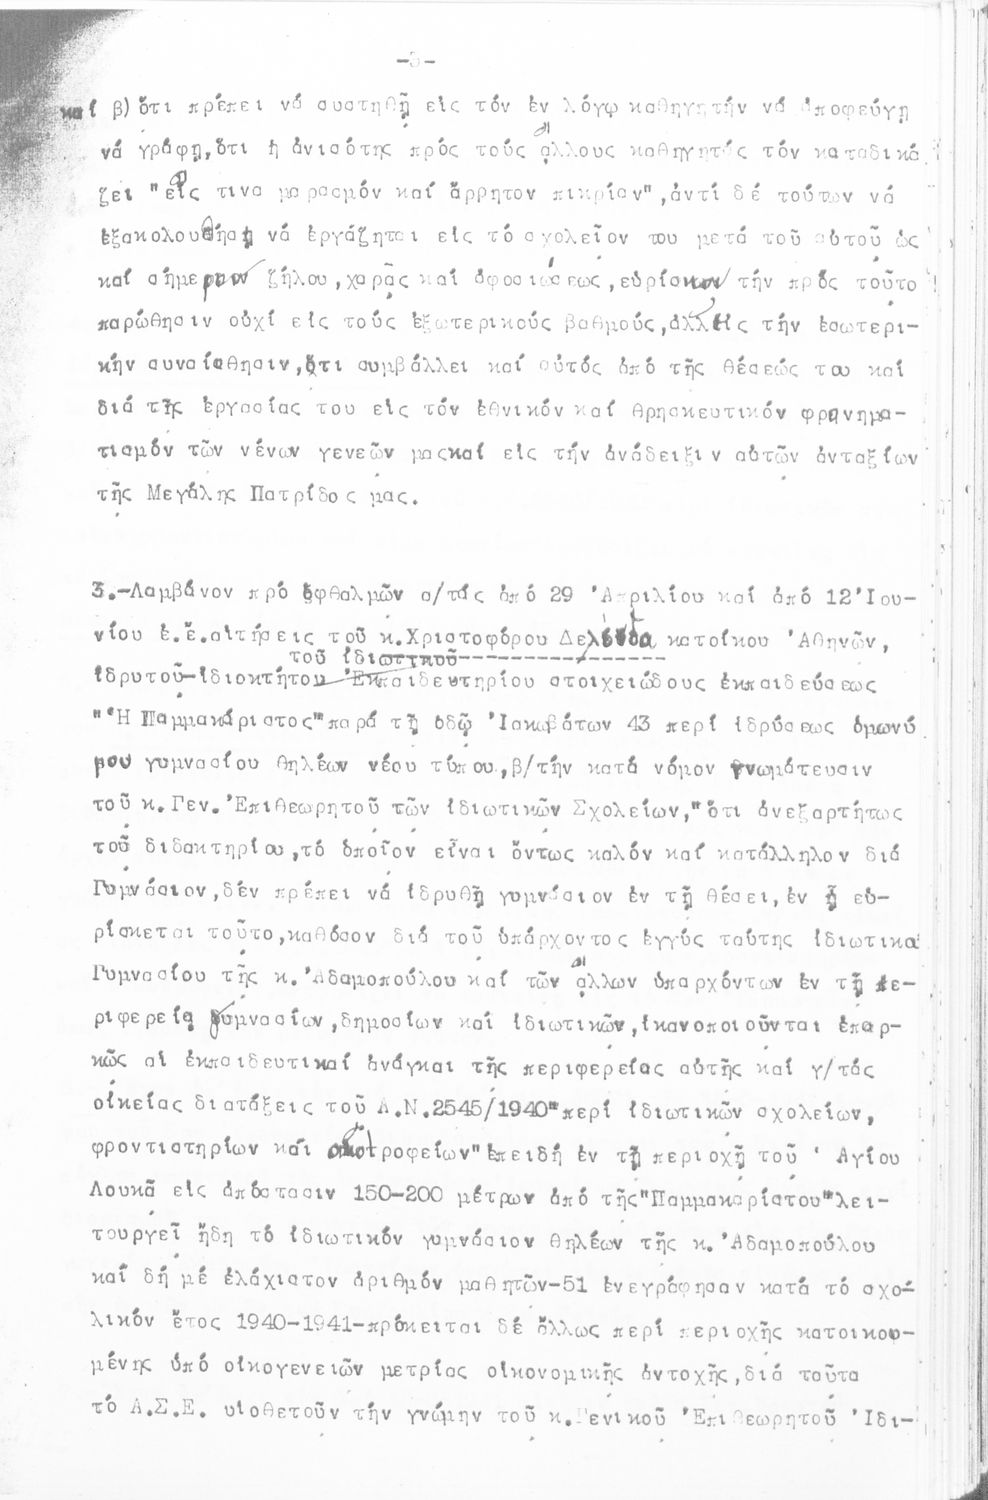 -5-
καί β) ὅτι πρέπει νά συστηθῇ εἰς τόν ἐν λόγῳ καθηγητήν νά ἀποφεύγῃ
νά γράφῃ, ὅτι ἡ ἀνισότης πρός τούς ἄλλους καθηγητάς τόν καταδικά
ζει "εἰς τινα μαρασμόν καί ἄρρητον πικρίαν", ἀντί δέ τούτων νά
ἐξακολουθήσῃ νά ἐργάζηται εἰς τό σχολεῖον του μετά τοῦ αὐτοῦ ὡς
καί σήμερον ζήλου, χαρᾶς καί ἀφοσιώσεως, εὑρίσκων τήν πρός τοῦτο
παρώθησιν οὐχί εἰς τούς ἐξωτερικούς βαθμούς, ἀλλ' εἰς τήν ἐσωτερι-
κήν συναίσθησιν, ὅτι συμβάλλει καί αὐτός ἀπό τῆς θέσεώς του καί
διά τῆς ἐργασίας του εἰς τόν ἐθνικόν καί θρησκευτικόν φρονημα-
τισμόν τῶν νένων γενεῶν μας καί εἰς τήν ἀνάδειξιν αὐτῶν ἀνταξίων
τῆς Μεγάλης Πατρίδος μας.
3.-Λαμβάνον πρό ὀφθαλμῶν α/τάς ἀπό 29 'Απριλίου καί ἀπό 12 'Ιου-
νίου ἐ.ἔ. αἰτήσεις τοῦ κ. Χριστοφόρου κατοίκου 'Αθηνῶν,
τοῦ ἰδιωτικοῦ
ἱδρυτοῦ-ἰδιοκτήτου 'Εκπαιδευτηρίου στοιχειώδους ἐκπαιδεύσεως
"'Η Παμμακάριστος" παρά τῇ ὁδῷ 'Ιακωβάτων 43 περί ἱδρύσεως ὁμωνύ
μου γυμνασίου θηλέων νέου τύπου, β/τήν κατά νόμον γνωμάτευσιν
τοῦ κ. Γεν. 'Επιθεωρητοῦ τῶν ἰδιωτικῶν Σχολείων, "ὅτι ἀνεξαρτήτως
τοῦ διδακτηρίου, τό ὁποῖον εἶναι ὄντως καλόν καί κατάλληλον διά
Γυμνάσιον, δέν πρέπει νά ἱδρυθῇ γυμνάσιον ἐν τῇ θέσει, ἐν ᾗ εὑ-
ρίσκεται τοῦτο, καθόσον διά τοῦ ὑπάρχοντος ἐγγύς ταύτης ἰδιωτικο
Γυμνασίου τῆς κ. 'Αδαμοπούλου καί τῶν ἄλλων ὑπαρχόντων ἐν τῇ πε-
ριφερείᾳ γυμνασίων, δημοσίων καί ἰδιωτικῶν, ἱκανοποιοῦνται ἐπαρ-
κῶς αἱ ἐκπαιδευτικαί ἀνάγκαι τῆς περιφερείας αὐτῆς καί γ/τάς
οἰκείας διατάξεις τοῦ Α.Ν. 2545/1940 "περί ἰδιωτικῶν σχολείων,
φροντιστηρίων καί οἰκοτροφείων" ἐπειδή ἐν τῇ περιοχῇ τοῦ 'Αγίου
Λουκᾶ εἰς ἀπόστασιν 150-200 μέτρων ἀπό τῆς "Παμμακαρίστου" λει-
τουργεῖ ἤδη τό ἰδιωτικόν γυμνάσιον θηλέων τῆς κ. 'Αδαμοπούλου
καί δή μέ ἐλάχιστον ἀριθμόν μαθητῶν-51 ἐνεγράφησαν κατά τό σχο-
λικόν ἔτος 1940-1941-πρόκειται δέ ἄλλως περί περιοχῆς κατοικου-
μένης ὑπό οἰκογενειῶν μετρίας οἰκονομικῆς ἀντοχῆς, διά ταῦτα
τό Α.Σ.Ε. υἱοθετοῦν τήν γνώμην τοῦ κ. Γενικοῦ 'Επιθεωρητοῦ 'Ιδι-